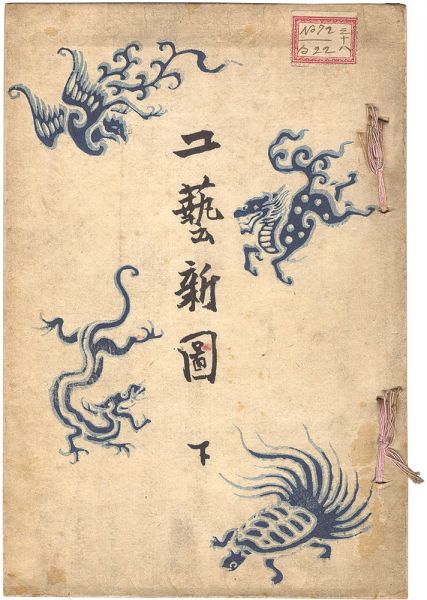 工藝新圖
下
No 72
三十八